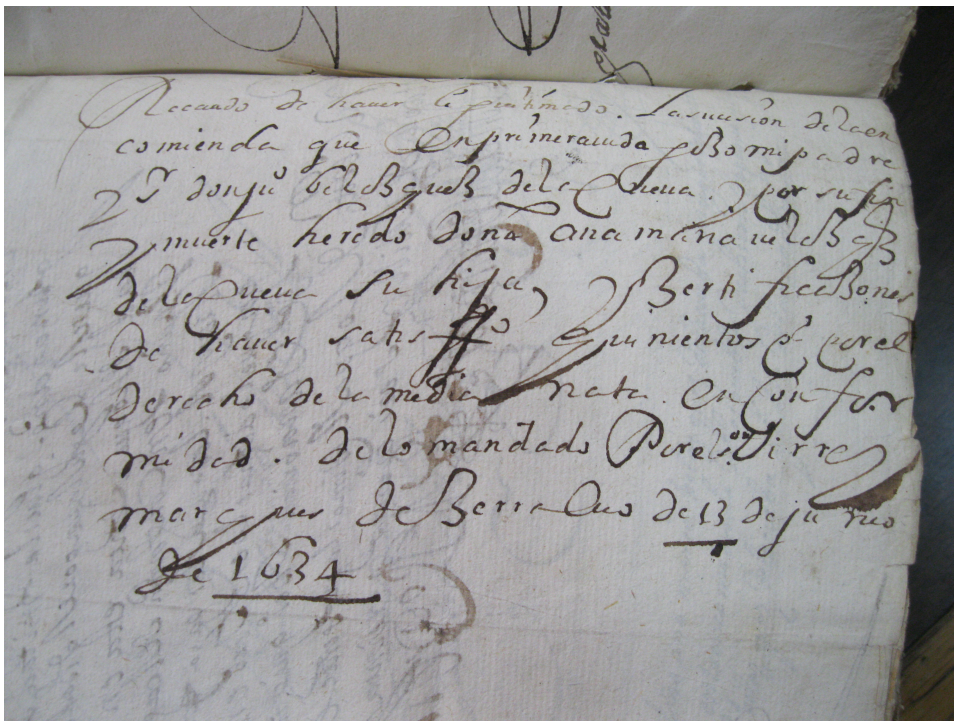 Recaudo de haver le yntimado. La susesion de la en
comienda que en primera uida goço mi padre
y Sr don juº belasques de la Cueua. y por su fin
y muerte heredo doña ana maria uelasqz
de la Cueua su hija, y Çertificaçiones
de hauer satisffº quinientos pº por el
derecho de la media nata. en Confor
midad. de lo mandado Por el sor Virrey
marques de Çerraluo de 13 de junio
de 1634